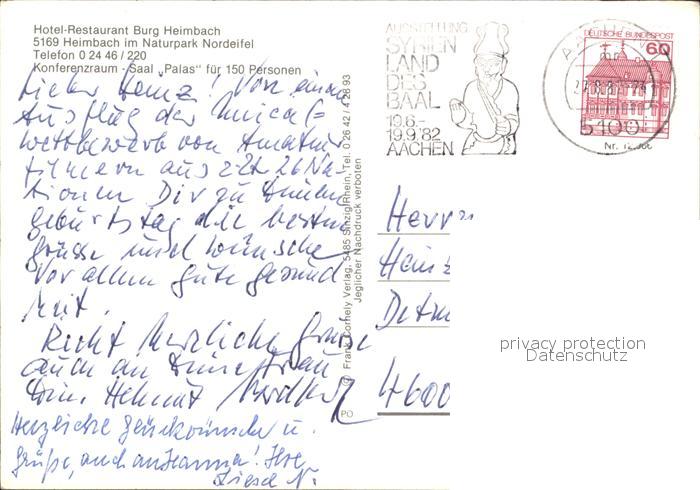 Hotel-Restaurant Burg Heimbach
5169 Heimbach im Naturpark Nordeifel
Telefon 0 24 46 / 220
Konferenzraum - Saal „Palas" für 150 Personen
Lieber Heinz! Von einem
Ausflug der Unica (=
wettbewerb von Amateur
filmern aus z.Zt. 26 Na-
tionen Dir zu Deinem
geburtstag die besten
Grüsse und wünsche
Vor allem gute gesund
heit.
Recht herzliche Grüsse
auch an Deine Frau
Dein Helmut
Herzliche Glückwünsche u.
Grüße, auch an Hanna! Ihre
Liesel N.
© Frank Cornely Verlag, 5485 Sinzig/Rhein, Tel. 0 26 42 / 4 28 93
Jeglicher Nachdruck verboten
PO
AUSSTELLUNG
SYRIEN
LAND
DES
BAAL
19.6.-
19.9.'82
AACHEN
DEUTSCHE BUNDESPOST
60
5100
Nr.
Herrn
Heinz
Detm
4600
privacy protection
Datenschutz